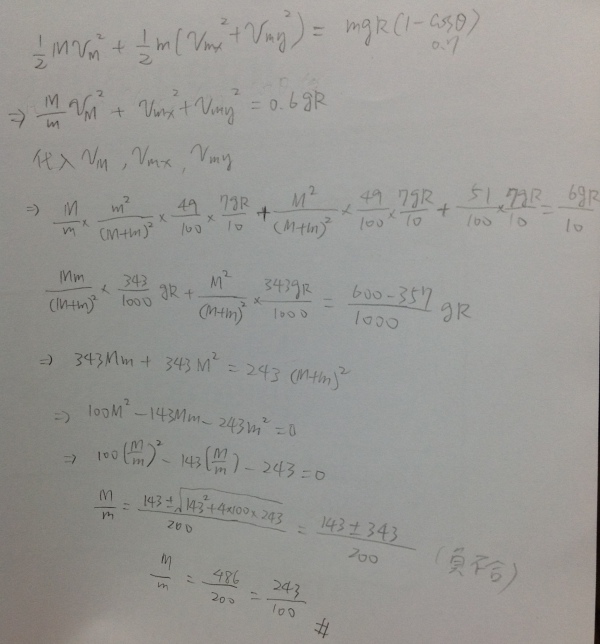 ½Mv_M² + ½m(v_mx² + v_my²) = mgR(1 - cosθ)
0.7
⇒ M/m v_M² + v_mx² + v_my² = 0.6gR
代入 v_M , v_mx , v_my
⇒ M/m × m²/(M+m)² × 49/100 × 7gR/10 + M²/(M+m)² × 49/100 × 7gR/10 + 51/100 × 7gR/10 = 6gR/10
Mm/(M+m)² × 343/1000 gR + M²/(M+m)² × 343gR/1000 = 600-357/1000 gR
⇒ 343Mm + 343M² = 243 (M+m)²
⇒ 100M² - 143Mm - 243m² = 0
⇒ 100(M/m)² - 143(M/m) - 243 = 0
M/m = 143 ± √143² + 4×100×243/200 = 143 ± 343/200 (負不合)
M/m = 486/200 = 243/100 #